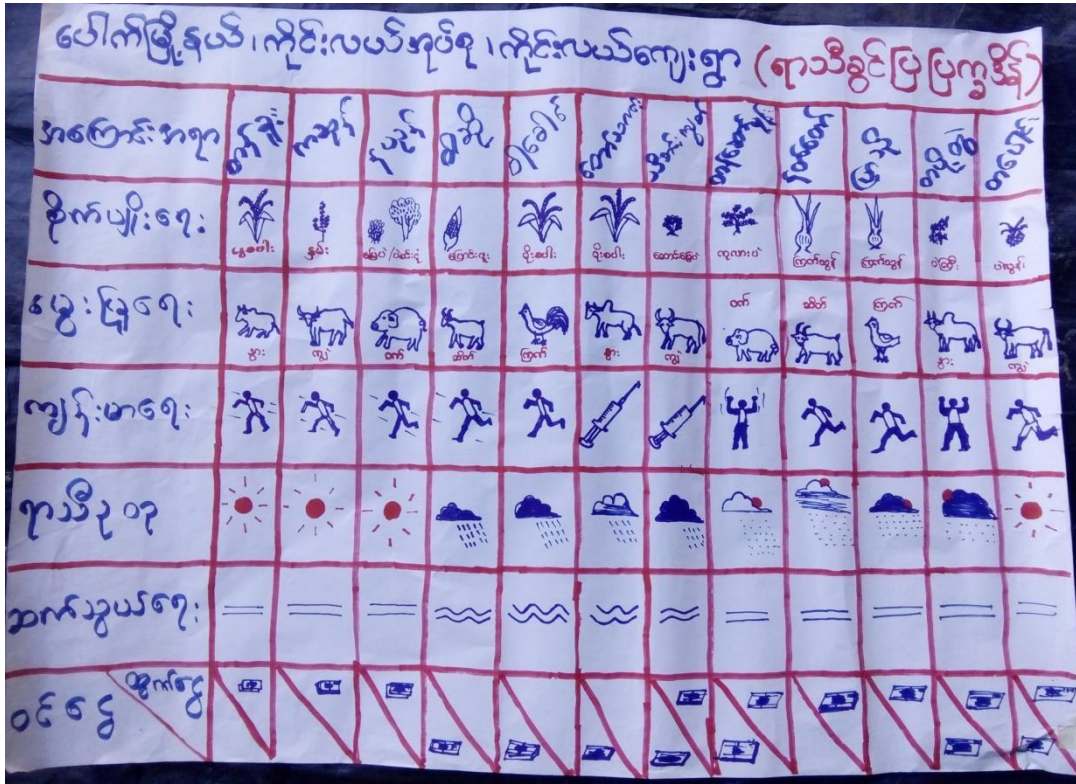 ပေါက်မြို့နယ်၊ ကိုင်းလယ်အုပ်စု၊ ကိုင်းလယ်ကျေးရွာ (ရာသီခွင်ပြပြက္ခဒိန်)
အကြောင်းအရာ တန်ခူး ကဆုန် နယုန် ဝါဆို ဝါခေါင် တော်သလင်း သီတင်းကျွတ် တန်ဆောင်မုန်း နတ်တော် ပြာသို တပို့တွဲ တပေါင်း
စိုက်ပျိုးရေး နွေစပါး နှမ်း မြေပဲ/ ပြောင်းဖူး မိုးစပါး မိုးစပါး ဆောင်းမြေပဲ ကုလားပဲ ကြက်သွန် ကြက်သွန် ပဲကြီး ပဲလွန်း
မွေးမြူရေး နွား ကျွဲ ဝက် ဆိတ် ကြက် နွား ကျွဲ ဝက် ဆိတ် ကြက် နွား ကျွဲ
ကျန်းမာရေး
ရာသီဥတု
ဆက်သွယ်ရေး
ထွက်ငွေ
ဝင်ငွေ